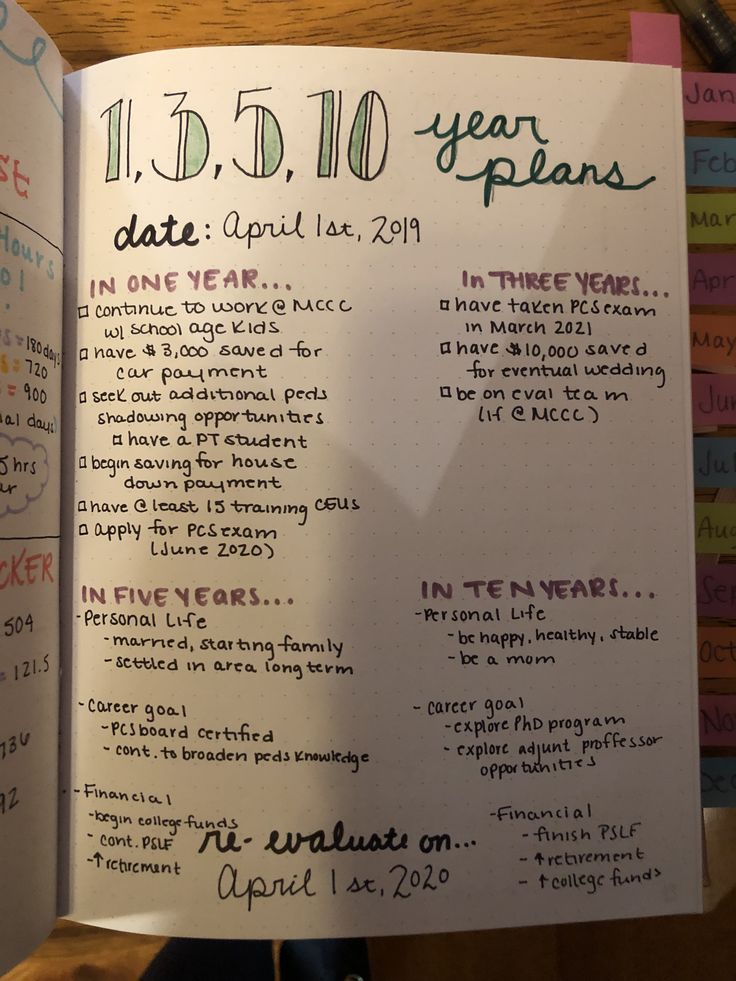 1, 3, 5, 10 year
plans
date: April 1st, 2019
IN ONE YEAR...
continue to work @ MCCC
w/ school age kids
have $3,000 saved for
car payment
seek out additional peds
shadowing opportunities
have a PT student
begin saving for house
down payment
have @ least 15 training CEUs
apply for PCS exam
(June 2020)
In THREE YEARS...
have taken PCS exam
in March 2021
have $10,000 saved
for eventual wedding
be on eval team
(if @ MCCC)
IN FIVE YEARS...
- Personal Life
- married, starting family
- settled in area long term
- Career goal
- PCS board certified
- cont. to broaden peds knowledge
- Financial
- begin college funds
- cont. PSLF
- ↑ retirement
IN TEN YEARS...
- Personal Life
- be happy, healthy, stable
- be a mom
- Career goal
- explore PhD program
- explore adjunt proffessor
opportunities
- Financial
- finish PSLF
- ↑ retirement
- ↑ college funds
re-evaluate on...
April 1st, 2020
Hours
= 180 days
= 720
= 900
5 hrs
CKER
504
= 121.5
736
92
Jan
Feb
Mar
Apr
May
Jun
Jul
Aug
Sep
Oct
Nov
Dec